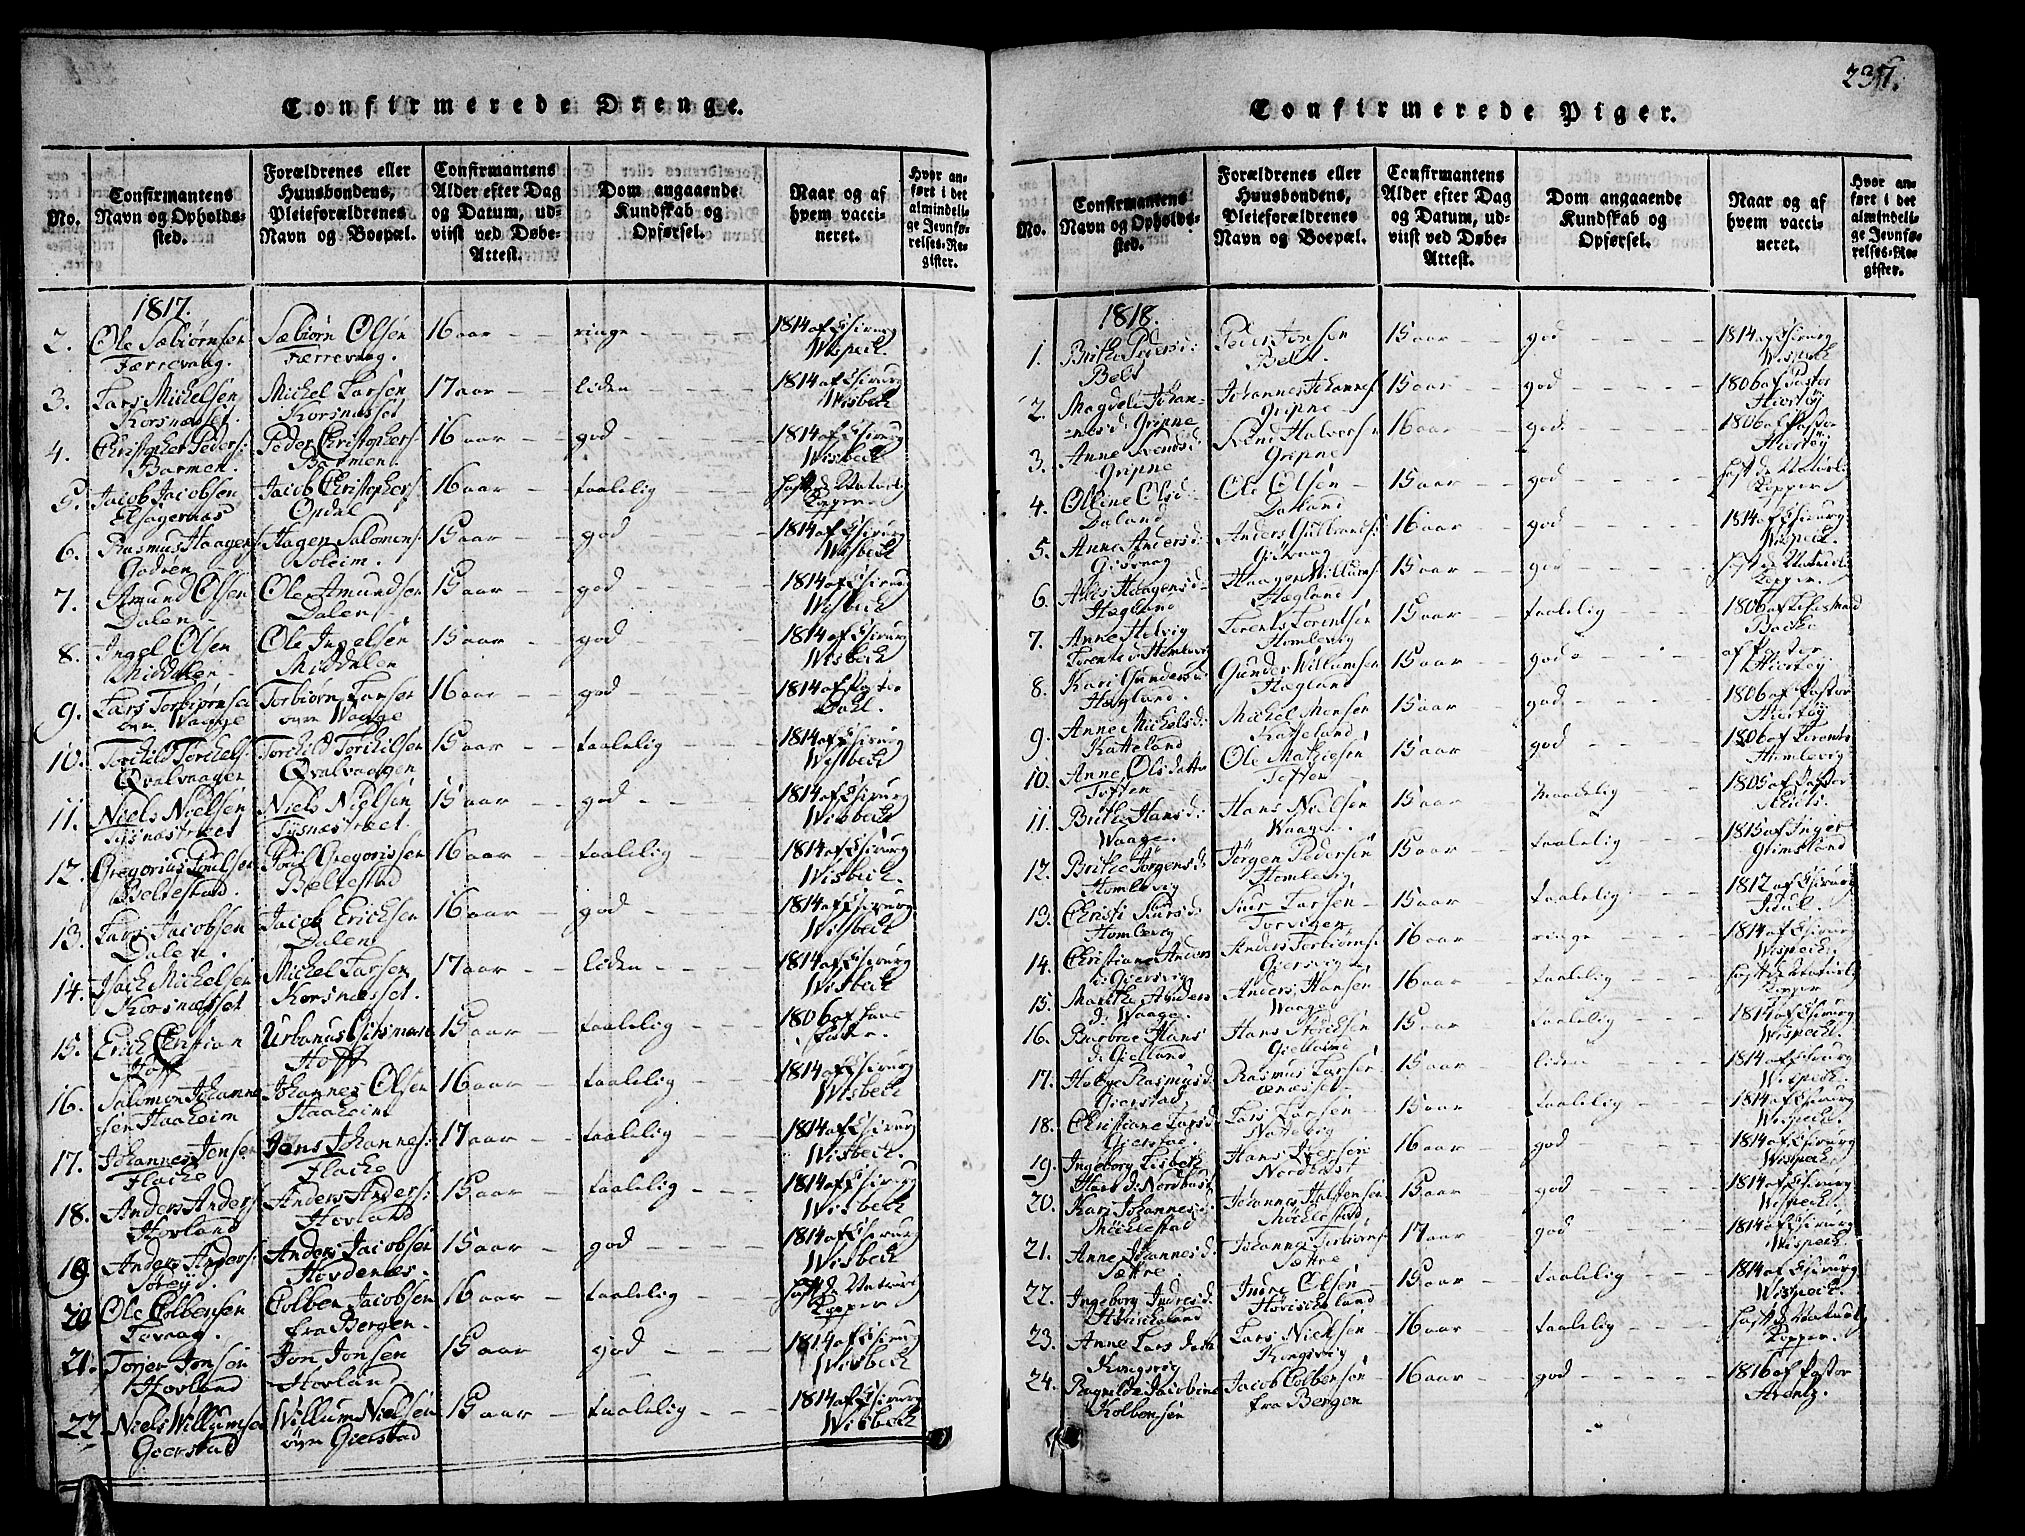 237.
Confirmerede Drenge.
No.
Confirmantens Navn og Opholds-sted.
Forældrenes eller Huusbondens, Pleieforældrenes Navn og Boepæl.
Confirmantens Alder efter Dag og Datum, ud-viist ved Døbe-Attest.
Dom angaaende Kundskab og Opførsel.
Naar og af hvem vacci-neret.
Hvor an-ført i det almindeli-ge Jevnfø-relses-Re-gister.
1817.
2. Ole Sæbiørnsen Færrevaag. Sæbiørn Olsen Færrevaag. 16 aar ringe 1814 af Chirurg Wisbech
3. Lars Michelsen Korsnæsset. Michel Larsen Korsnæsset 17 aar liden 1814 af Chirurg Wisbech
4. Christopher Peders: Barmen. Peder Christophers: Barmen 16 aar god 1814 af Chirurg Wisbech
5. Jacob Jacobsen Jacob Christophers: Opdal 16 aar taalelig havt de Naturl: Kopper
6. Rasmus Haagens: Godøen Hagen Salomons: Soleim. 15 aar god 1814 af Chirurg Wisbech
7. Amund Olsen Dalen Ole Amundsen Dalen 15 aar god 1814 af Chirurg Wisbech
8. Ingel Olsen Middalen Ole Ingelsen Middalen 15 aar god 1814 af Chirurg Wisbech
9. Lars Torbiørnsen Waage Torbiørn Larsen Waage 16 aar god 1814 af Pastor Dahl.
10. Torchild Torchels: Qvalvaagen Torchild Torchilsen Qvalvaagen 15 aar taalelig 1814 af Chirurg Wisbech
11. Niels Nielsen Tysnæstræet Niels Nielsen Tysnæstræet. 15 aar god 1814 af Chirurg Wisbech
12. Gregorius Poulsen Beltestad. Poul Gregorissen Beltestad 16 aar taalelig 1814 af Chirurg Wisbech.
13. Lars Jacobsen Dalen. Jacob Erichsen Dalen 16 aar god 1814 af Chirurg Wisbech
14. Isach Michelsen Korsnæsset Michel Larsen Korsnæsset. 17 aar liden 1814 af Chirurg Wisbech
15. Erich Christian Hoff Urbanus Hoff 15 aar taalelig 1806 af
16. Salomon Johanne sen Haaheim Johannes Olsen Haaheim 16 aar taalelig 1814 af Chirurg Wisbech
17. Johannes Jensen Flache Jens Johannes: Flache 17 aar taalelig 1814 af Chirurg Wisbech.
18. Anders Anders: Hovland Anders Anders: Hovland 15 aar taalelig 1814 af Chirurg Wisbech
19. Anders Anders: Anders Jacobsen Hovdenæs. 15 aar god 1814 af Chirurg Wisbech
20. Ole Colbensen Colben Jacobsen fra Bergen. 16 aar taalelig havt de Naturl Kopper
21. Torjer Jonsen Hovland Jon Jonsen Hovland 15 aar god 1814 af Chirurg Wisbech
22. Niels Willumsen Gierstad Willum Nielsen Gierstad 15 aar taalelig 1814 af Chirurg Wisbech
Confirmerede Piger.
No.
Confirmantens Navn og Opholds-sted.
Forældrenes eller Huusbondens, Pleieforældrenes Navn og Boepæl.
Confirmantens Alder efter Dag og Datum, ud-viist ved Døbe-Attest.
Dom angaaende Kundskab og Opførsel.
Naar og af hvem vacci-neret.
Hvor an-ført i det almindeli-ge Jevnfø-relses-Re-gister.
1818.
1. Brithe Peders d: Belt Peder Jonsen Belt. 15 aar god 1814 af Chirurg Wispech
2. Magdeli Johan-nes d: Gripne Johannes Johannes: Gripne 15 aar god 1806 af Pastor Hiortøy
3. Anne Svends d: Gripne Svend Halvorsen Gripne 16 aar god 1806 af Pastor Hiortøy
4. Ollene Ols d: Daland Ole Olsen Daland 15 aar god havt de Naturl: Kopper
5. Anne Anders d: Gisvaag Anders Gulbrands: Gisvaag 16 aar god 1814 af Chirurg: Wispech.
6. Haagens d: Hægland Haagen Willums: Hægland 15 aar god havt de Naturl: Kopper.
7. Anne Helvig Lorents d: Homlevig Lorents Lorentsen Homlevig 15 aar taalelig 1806 af
8. Kari Gunders d: Hægland. Gunder Willumsen Hægland 15 aar god af Pastor Hiortøy.
9. Anne Michels d: Katteland Michel Monsen Katteland 15 aar god 1806 af Pastor Hiortøy
10. Anne Olsdatter Toften Ole Mathiesen Toften 15 aar god 1806 af Lorents Homlevig
11. Brithe Hans d: Waage. Hans Nielsen Waage. 15 aar Maadelig 1805 af Pastor
12. Brithe Jørgens d: Homlevig Jørgen Pedersen Homlevig 15 aar taalelig 1815 af Inger Grimsland
13. Christi Siurs d: Homlevig Siur Larsen 15 aar taalelig 1812 af Chirurg
14. Christiane Anders d: Giersvig Anders Torbiørns: Giersvig 16 aar ringe 1814 af Chirurg Wispech.
15. Marithe Anders d: Waage. Anders Hansen Waage 16 aar taalelig havt de Naturl: Kopper
16. Barbroe Hans d: Gielland Hans Gielland 15 aar taalelig 1814 af Chirurg Wispech.
17. Helge Rasmus d: Gierstad Rasmus Larsen 15 aar liden 1814 af Chirurg Wispech
18. Christiane Lars d: Gierstad. Lars Larsen Nattevig 15 aar taalelig 1814 af Chirurg Wispech.
19. Ingeborg Lisbeth Hans d: Nordhus Hans Iversen Nordhus 16 aar god 1814 af Chirurg Wispech.
20. Kari Johannes d: Møchlestad Johannes Haldorsen Møchlestad 15 aar god 1814 af Chirurg Wispech.
21. Anne Johannes d: Sættre Johannes Torbiørns: Sættre 17 aar god 1814 af Chirurg Wispech
22. Ingeborg Indres d: Indre Olsen 15 aar taalelig 1814 af Chirurg Wispech.
23. Anne Lars datt Kongsvig Lars Nielsen Kongsvig 16 aar taalelig havt de Naturl: Kopper.
24. Ragnilde Jacobine Kolbensen Jacob Colbensen fra Bergen 16 aar god 1816 af Pastor Arentz.